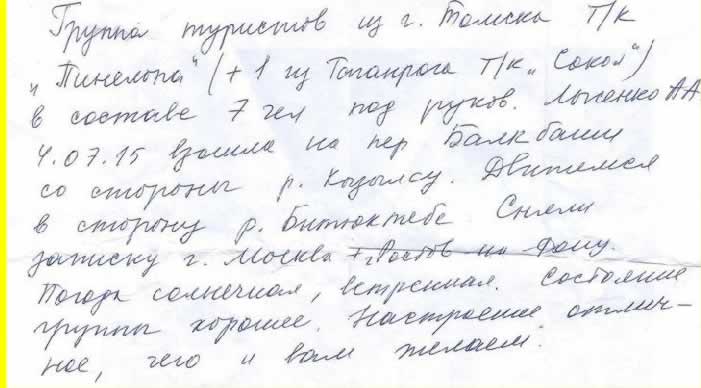 Группа туристов из г. Томска Т/к
"Пинелопа" (+1 из Таганрога Т/к "Сокол")
в составе 7 чел под руков. Лысенко А А
4.07.15 взошла на пер Балкбаши
со стороны р. Кызылсу. Движемся
в сторону р. Битюктебе Сняли
записку г. Москва + г. Ростов на Дону.
Погода солнечная, ветренная. Состояние
группы хорошее. Настроение отлич-
ное, чего и вам желаем.